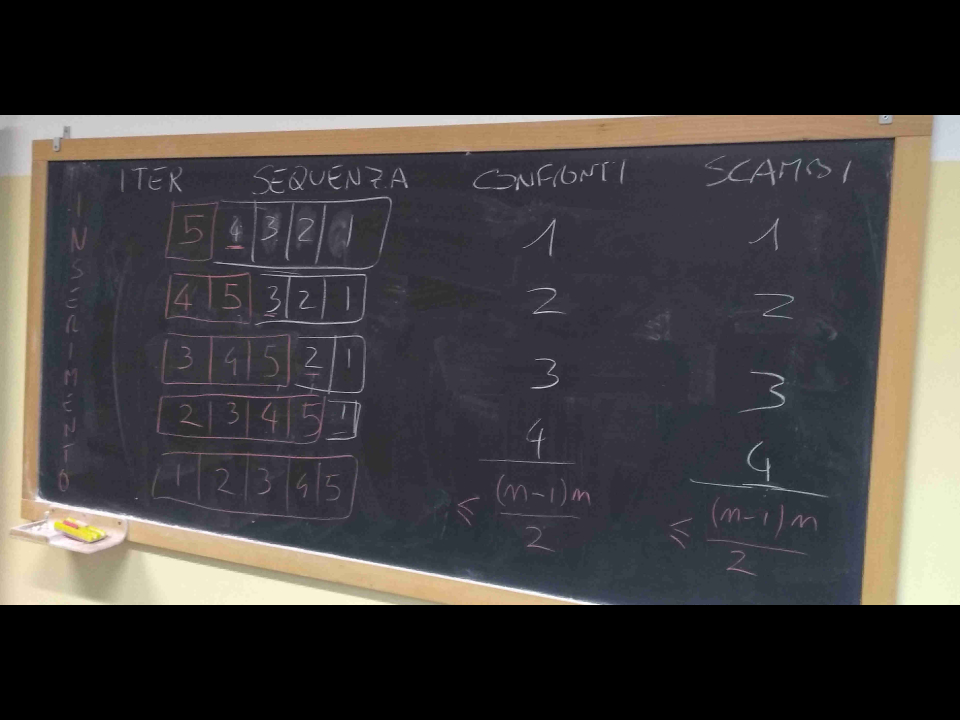 INSERIMENTO
ITER SEQUENZA CONFRONTI SCAMBI
5 4 3 2 1 1 1
4 5 3 2 1 2 2
3 4 5 2 1 3 3
2 3 4 5 1 4 4
1 2 3 4 5 ≤ (n-1)n / 2 ≤ (n-1)n / 2